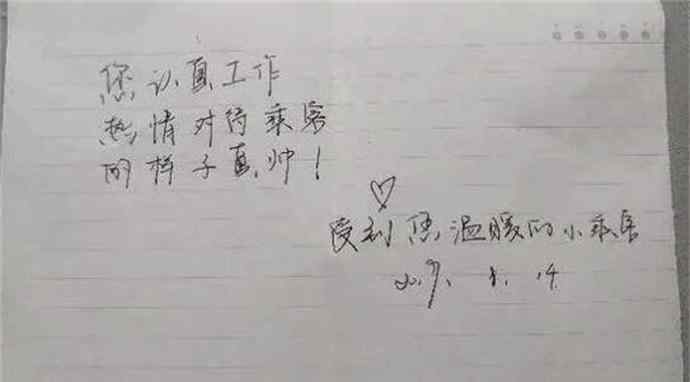 您认真工作
热情对待乘客
的样子真帅!
受到您温暖的小乘客
2019. 1. 14